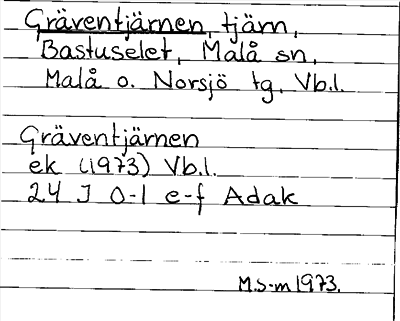 Gräventjärnen, tjärn,
Bastuselet, Malå sn,
Malå o. Norsjö tg, Vb.l.
Gräventjärnen
ek (1973) Vb.l.
24 J 0-1 e-f Adak
M.S-m 1973.